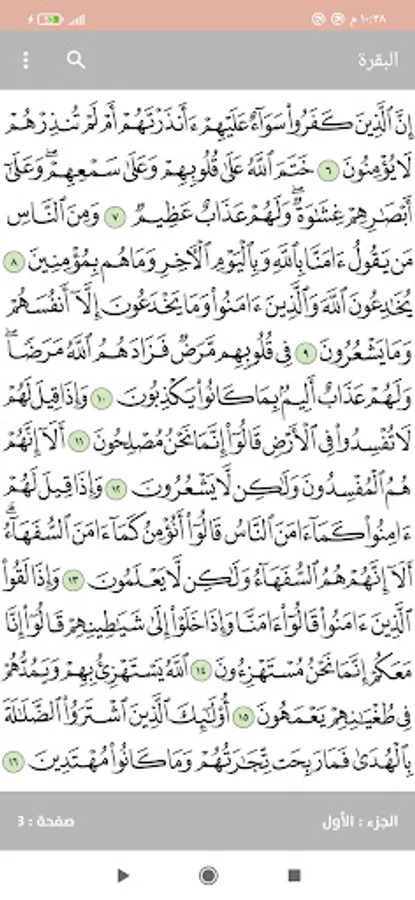 ١٠:٢٨ م
البقرة
إِنَّ ٱلَّذِينَ كَفَرُوا۟ سَوَآءٌ عَلَيْهِمْ ءَأَنذَرْتَهُمْ أَمْ لَمْ تُنذِرْهُمْ
لَا يُؤْمِنُونَ ٦ خَتَمَ ٱللَّهُ عَلَىٰ قُلُوبِهِمْ وَعَلَىٰ سَمْعِهِمْ ۖ وَعَلَىٰٓ
أَبْصَٰرِهِمْ غِشَٰوَةٌ ۖ وَلَهُمْ عَذَابٌ عَظِيمٌ ٧ وَمِنَ ٱلنَّاسِ
مَن يَقُولُ ءَامَنَّا بِٱللَّهِ وَبِٱلْيَوْمِ ٱلْءَاخِرِ وَمَا هُم بِمُؤْمِنِينَ ٨
يُخَٰدِعُونَ ٱللَّهَ وَٱلَّذِينَ ءَامَنُوا۟ وَمَا يَخْدَعُونَ إِلَّآ أَنفُسَهُمْ
وَمَا يَشْعُرُونَ ٩ فِى قُلُوبِهِم مَّرَضٌ فَزَادَهُمُ ٱللَّهُ مَرَضًا ۖ
وَلَهُمْ عَذَابٌ أَلِيمٌۢ بِمَا كَانُوا۟ يَكْذِبُونَ ١٠ وَإِذَا قِيلَ لَهُمْ
لَا تُفْسِدُوا۟ فِى ٱلْأَرْضِ قَالُوٓا۟ إِنَّمَا نَحْنُ مُصْلِحُونَ ١١ أَلَآ إِنَّهُمْ
هُمُ ٱلْمُفْسِدُونَ وَلَٰكِن لَّا يَشْعُرُونَ ١٢ وَإِذَا قِيلَ لَهُمْ
ءَامِنُوا۟ كَمَآ ءَامَنَ ٱلنَّاسُ قَالُوٓا۟ أَنُؤْمِنُ كَمَآ ءَامَنَ ٱلسُّفَهَآءُ ۗ
أَلَآ إِنَّهُمْ هُمُ ٱلسُّفَهَآءُ وَلَٰكِن لَّا يَعْلَمُونَ ١٣ وَإِذَا لَقُوا۟
ٱلَّذِينَ ءَامَنُوا۟ قَالُوٓا۟ ءَامَنَّا وَإِذَا خَلَوْا۟ إِلَىٰ شَيَٰطِينِهِمْ قَالُوٓا۟ إِنَّا
مَعَكُمْ إِنَّمَا نَحْنُ مُسْتَهْزِءُونَ ١٤ ٱللَّهُ يَسْتَهْزِئُ بِهِمْ وَيَمُدُّهُمْ
فِى طُغْيَٰنِهِمْ يَعْمَهُونَ ١٥ أُو۟لَٰٓئِكَ ٱلَّذِينَ ٱشْتَرَوُا۟ ٱلضَّلَٰلَةَ
بِٱلْهُدَىٰ فَمَا رَبِحَت تِّجَٰرَتُهُمْ وَمَا كَانُوا۟ مُهْتَدِينَ ١٦
الجزء : الأول
صفحة : 3